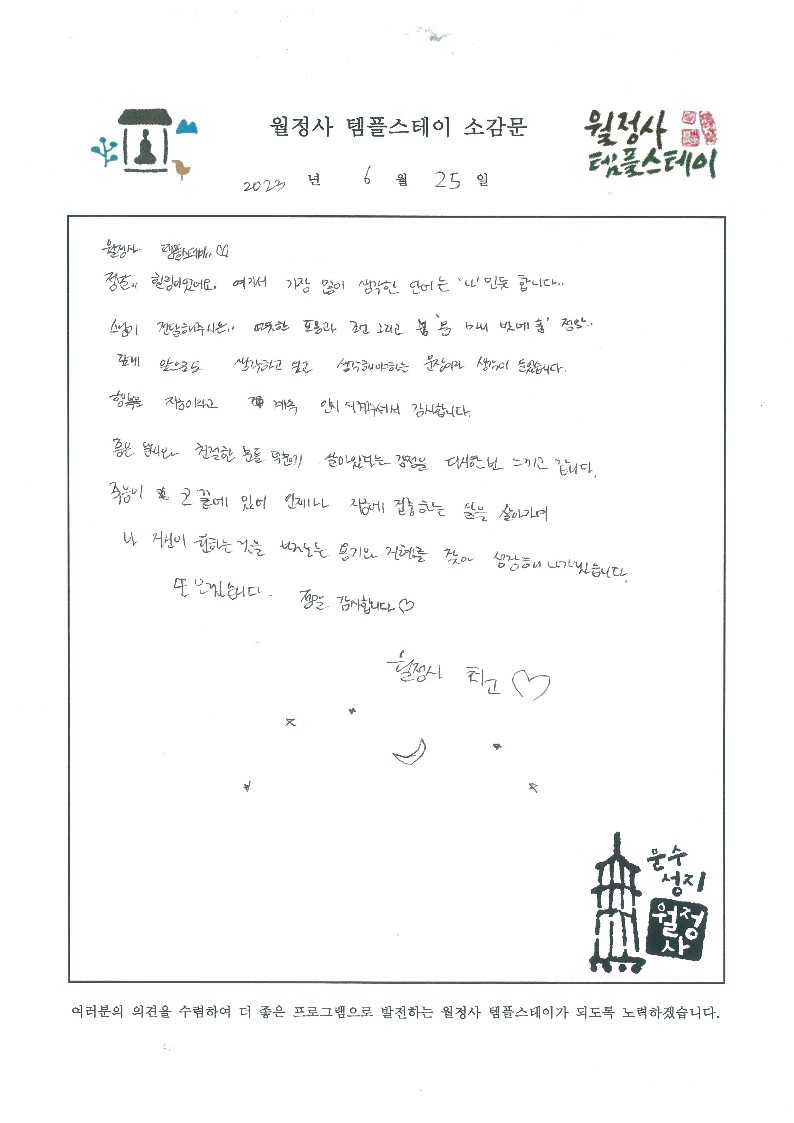 월정사 템플스테이 소감문
월정사
템플스테이
2023 년 6 월 25 일
월정사 템플스테이.. ♡
정말.. 힐링이었어요. 여기서 가장 많이 생각한 단어는 '나'인듯 합니다..
스님이 전달해주시는.. 따뜻한 포용과 그리고 정말..
앞으로도 생각하고 싶고 생각해야하는 문장이라 생각이 들었습니다.
행복은 지금이라고 계속 인지시켜주셔서 감사합니다.
좋은 날씨와 친절한 분들 덕분에 살아있다는 감정을 다시한번 느끼고 갑니다.
죽음이 코 끝에 있어 언제나 지금에 집중하는 삶을 살아가며
나 자신이 원하는 것을 용기와 지혜를 찾아 성장해 나가겠습니다.
또 오겠습니다. 정말 감사합니다 ♡
월정사 최고 ♡
문수
성지
월정
사
여러분의 의견을 수렴하여 더 좋은 프로그램으로 발전하는 월정사 템플스테이가 되도록 노력하겠습니다.